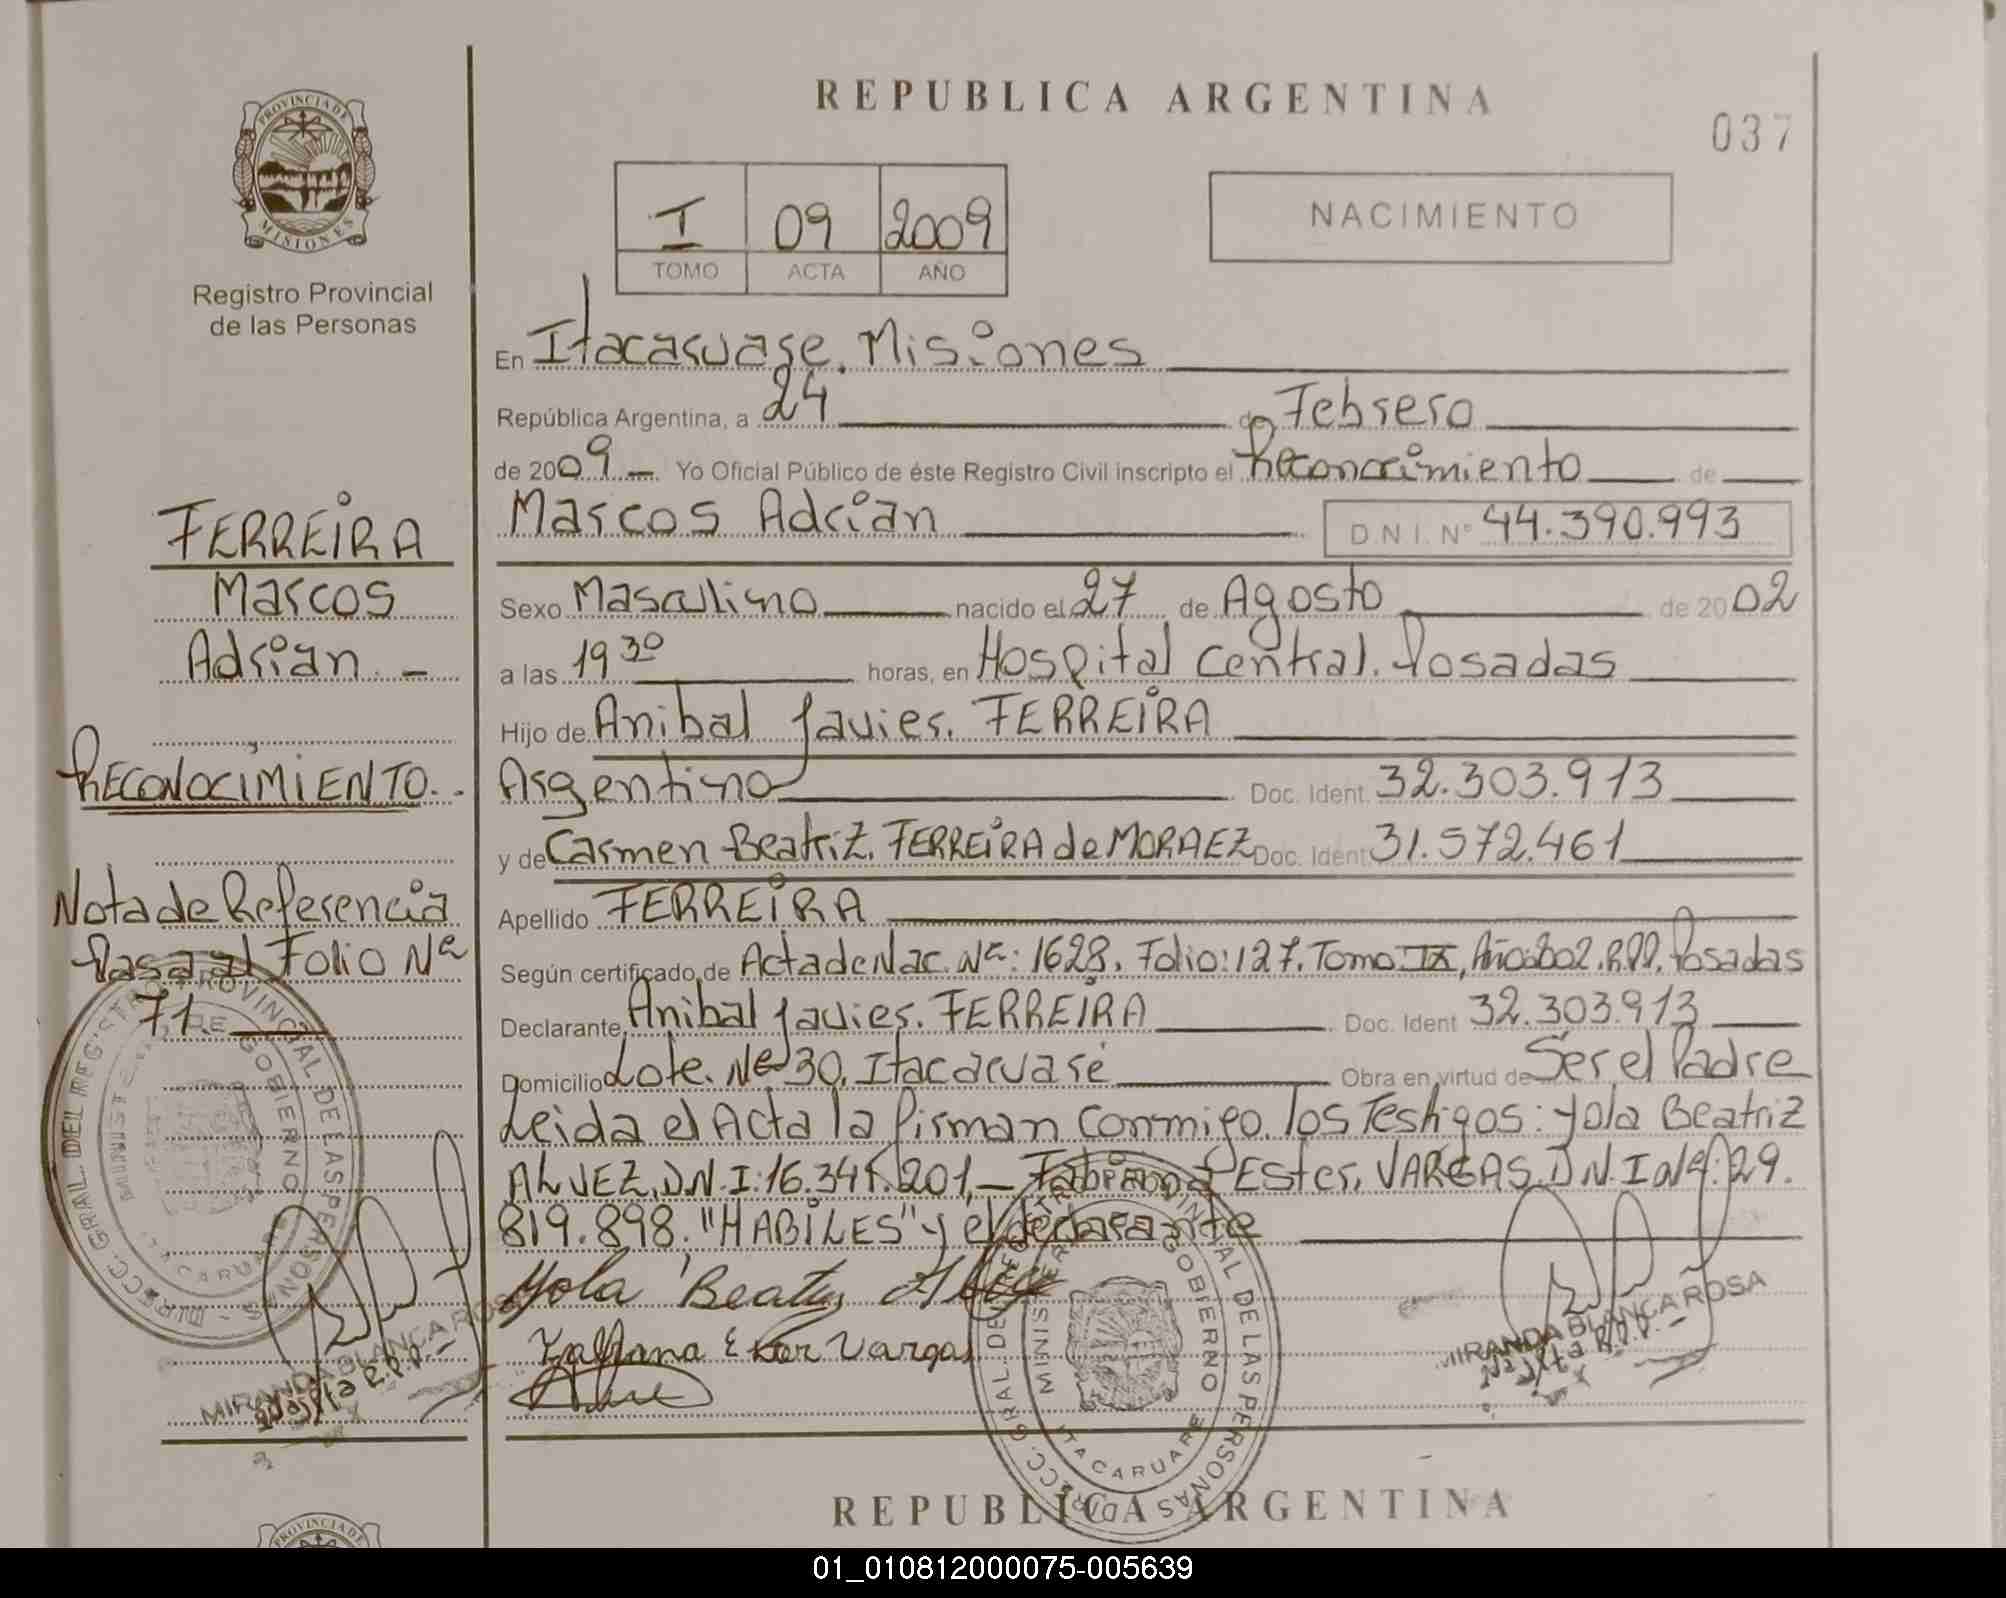 REPUBLICA ARGENTINA
037
PROVINCIA DE
MISIONES
Registro Provincial
de las Personas
I 09 2009
TOMO ACTA AÑO
NACIMIENTO
En Itacaruare. Misiones
República Argentina, a 24 de Febrero
de 2009.- Yo Oficial Público de éste Registro Civil inscripto el Reconocimiento de
Marcos Adrian D.N.I. N° 44.390.993
Sexo Masculino nacido el 27 de Agosto de 2002
a las 19 30 horas, en Hospital Central. Posadas
Hijo de Anibal Javier. FERREIRA
Argentino Doc. Ident. 32.303.913
y de Carmen Beatriz. FERREIRA de MORAEZ Doc. Ident. 31.572.461
Apellido FERREIRA
Según certificado de Acta de Nac. Nº: 1628. Folio: 127. Tomo IX, Año: 2002. R.P.P. Posadas
Declarante Anibal Javier. FERREIRA Doc. Ident 32.303.913
Domicilio Lote. Nº 30. Itacaruaré Obra en virtud de Ser el Padre
Leida el Acta la firman conmigo. los Testigos: Yola Beatriz
ALVEZ. D.N.I: 16.341.201.- Fabiana Ester. VARGAS. D.N.I Nº: 29.
819.898. "HABILES" y el declarante
Yola Beatriz
Ester Vargas
FERREIRA
Marcos
Adrian.-
RECONOCIMIENTO..
Nota de Referencia
Pasa al Folio Nº
71.
DIRECC. GRAL. DEL REGISTRO PROVINCIAL DE LAS PERSONAS
GOBIERNO
ITACARUARE
MIRANDA BLANCA ROSA
R.P.P.-
DIRECC. GRAL. DEL REGISTRO PROVINCIAL DE LAS PERSONAS
GOBIERNO
ITACARUARE
MIRANDA BLANCA ROSA
R.P.P.-
REPUBLICA ARGENTINA
PROVINCIA DE
01_010812000075-005639